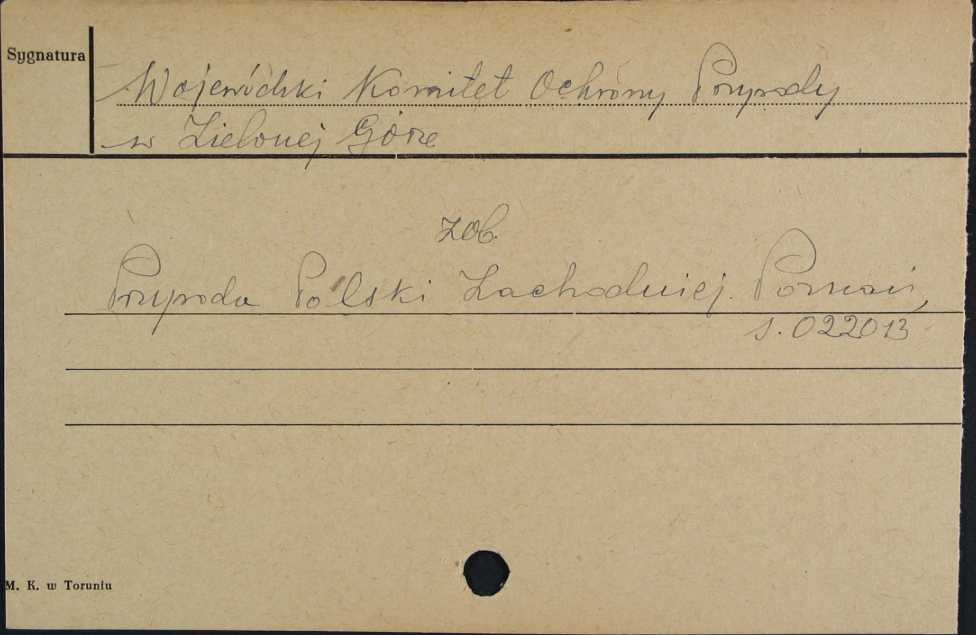 Sygnatura
Wojewódzki Komitet Ochrony Przyrody
w Zielonej Górze
zob.
Przyroda Polski Zachodniej. Poznań,
s. 022013
M. K. w Toruniu